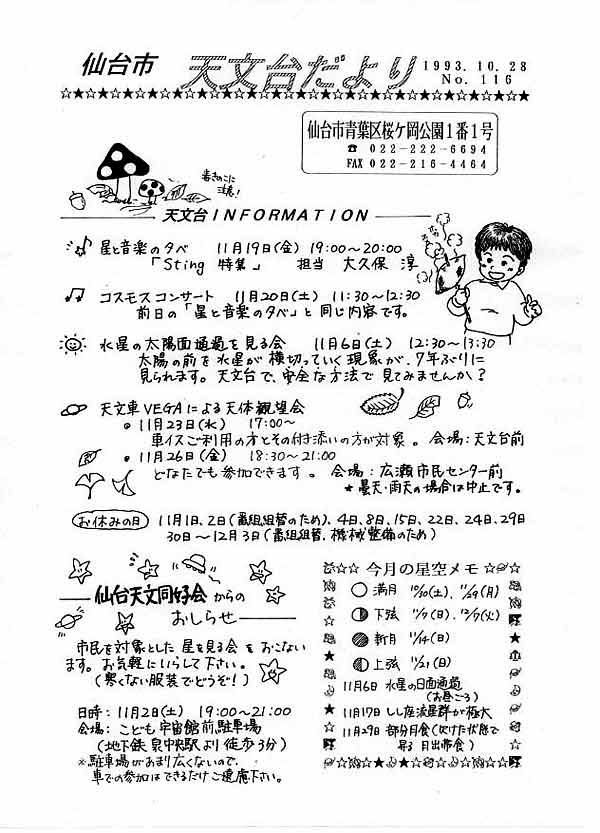 仙台市 天文台だより 1993.10.28
No. 116
仙台市青葉区桜ケ岡公園1番1号
☎ 022-222-6694
FAX 022-216-4464
毒きのこに
注意!
天文台INFORMATION
星と音楽の夕べ 11月19日(金) 19:00~20:00
「Sting 特集」 担当 大久保 淳
コスモスコンサート 11月20日(土) 11:30~12:30
前日の「星と音楽の夕べ」と同じ内容です。
水星の太陽面通過を見る会 11月6日(土) 12:30~13:30
太陽の前を水星が横切っていく現象が、7年ぶりに
見られます。天文台で、安全な方法で見てみませんか?
天文車VEGAによる天体観望会
◎11月23日(水) 17:00~
車イスご利用の方とその付き添いの方が対象。 会場:天文台前
◎11月26日(金) 18:30~21:00
どなたでも参加できます。 会場:広瀬市民センター前
★曇天・雨天の場合は中止です。
お休みの日 11月1日、2日(番組組替のため)、4日、8日、15日、22日、24日、29日
30日~12月3日(番組組替、機械整備のため)
仙台天文同好会からの
おしらせ
市民を対象とした星を見る会をおこない
ます。お気軽にいらして下さい。
(寒くない服装でどうぞ!)
日時:11月2日(土) 19:00~21:00
会場:こども宇宙館前駐車場
(地下鉄泉中央駅より徒歩3分)
※駐車場があまり広くないので、
車での参加はできるだけご遠慮下さい。
今月の星空メモ
満月 10/30(土)、11/29(月)
下弦 11/7(日)、12/7(火)
新月 11/14(日)
上弦 11/21(日)
11月6日 水星の日面通過
(お昼ごろ)
11月17日 しし座流星群が極大
11月29日 部分月食(欠けた状態で
昇る 月出帯食)